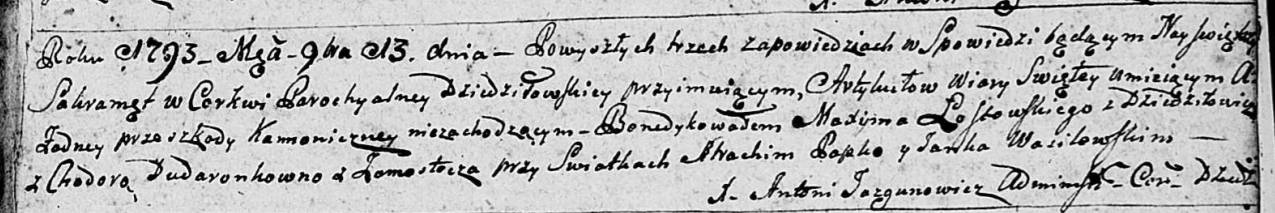 Roku 1793 – Mca – 9bra 13. dnia – Powyszłych trzech zapowiedziach w Spowiedzi będącym Nayświęt
Sakramęt w Cerkwi Parochyalney Dziedziłowskiey przyimuiącym, Artykułow Wiary Swiętey umieiącym A
Żadney przeszkody Kannoniczney niezachodzącym – Benedykowałem Maxyma Łostowskiego z Dziedziłowicz
z Chodorą Dudaronkowno z Zamostocza przy Swiatkach Atrachim Papko y Janka Wasilowskim –
X. Antoni Jazgunowicz Adminstr – Cer – Dziedz